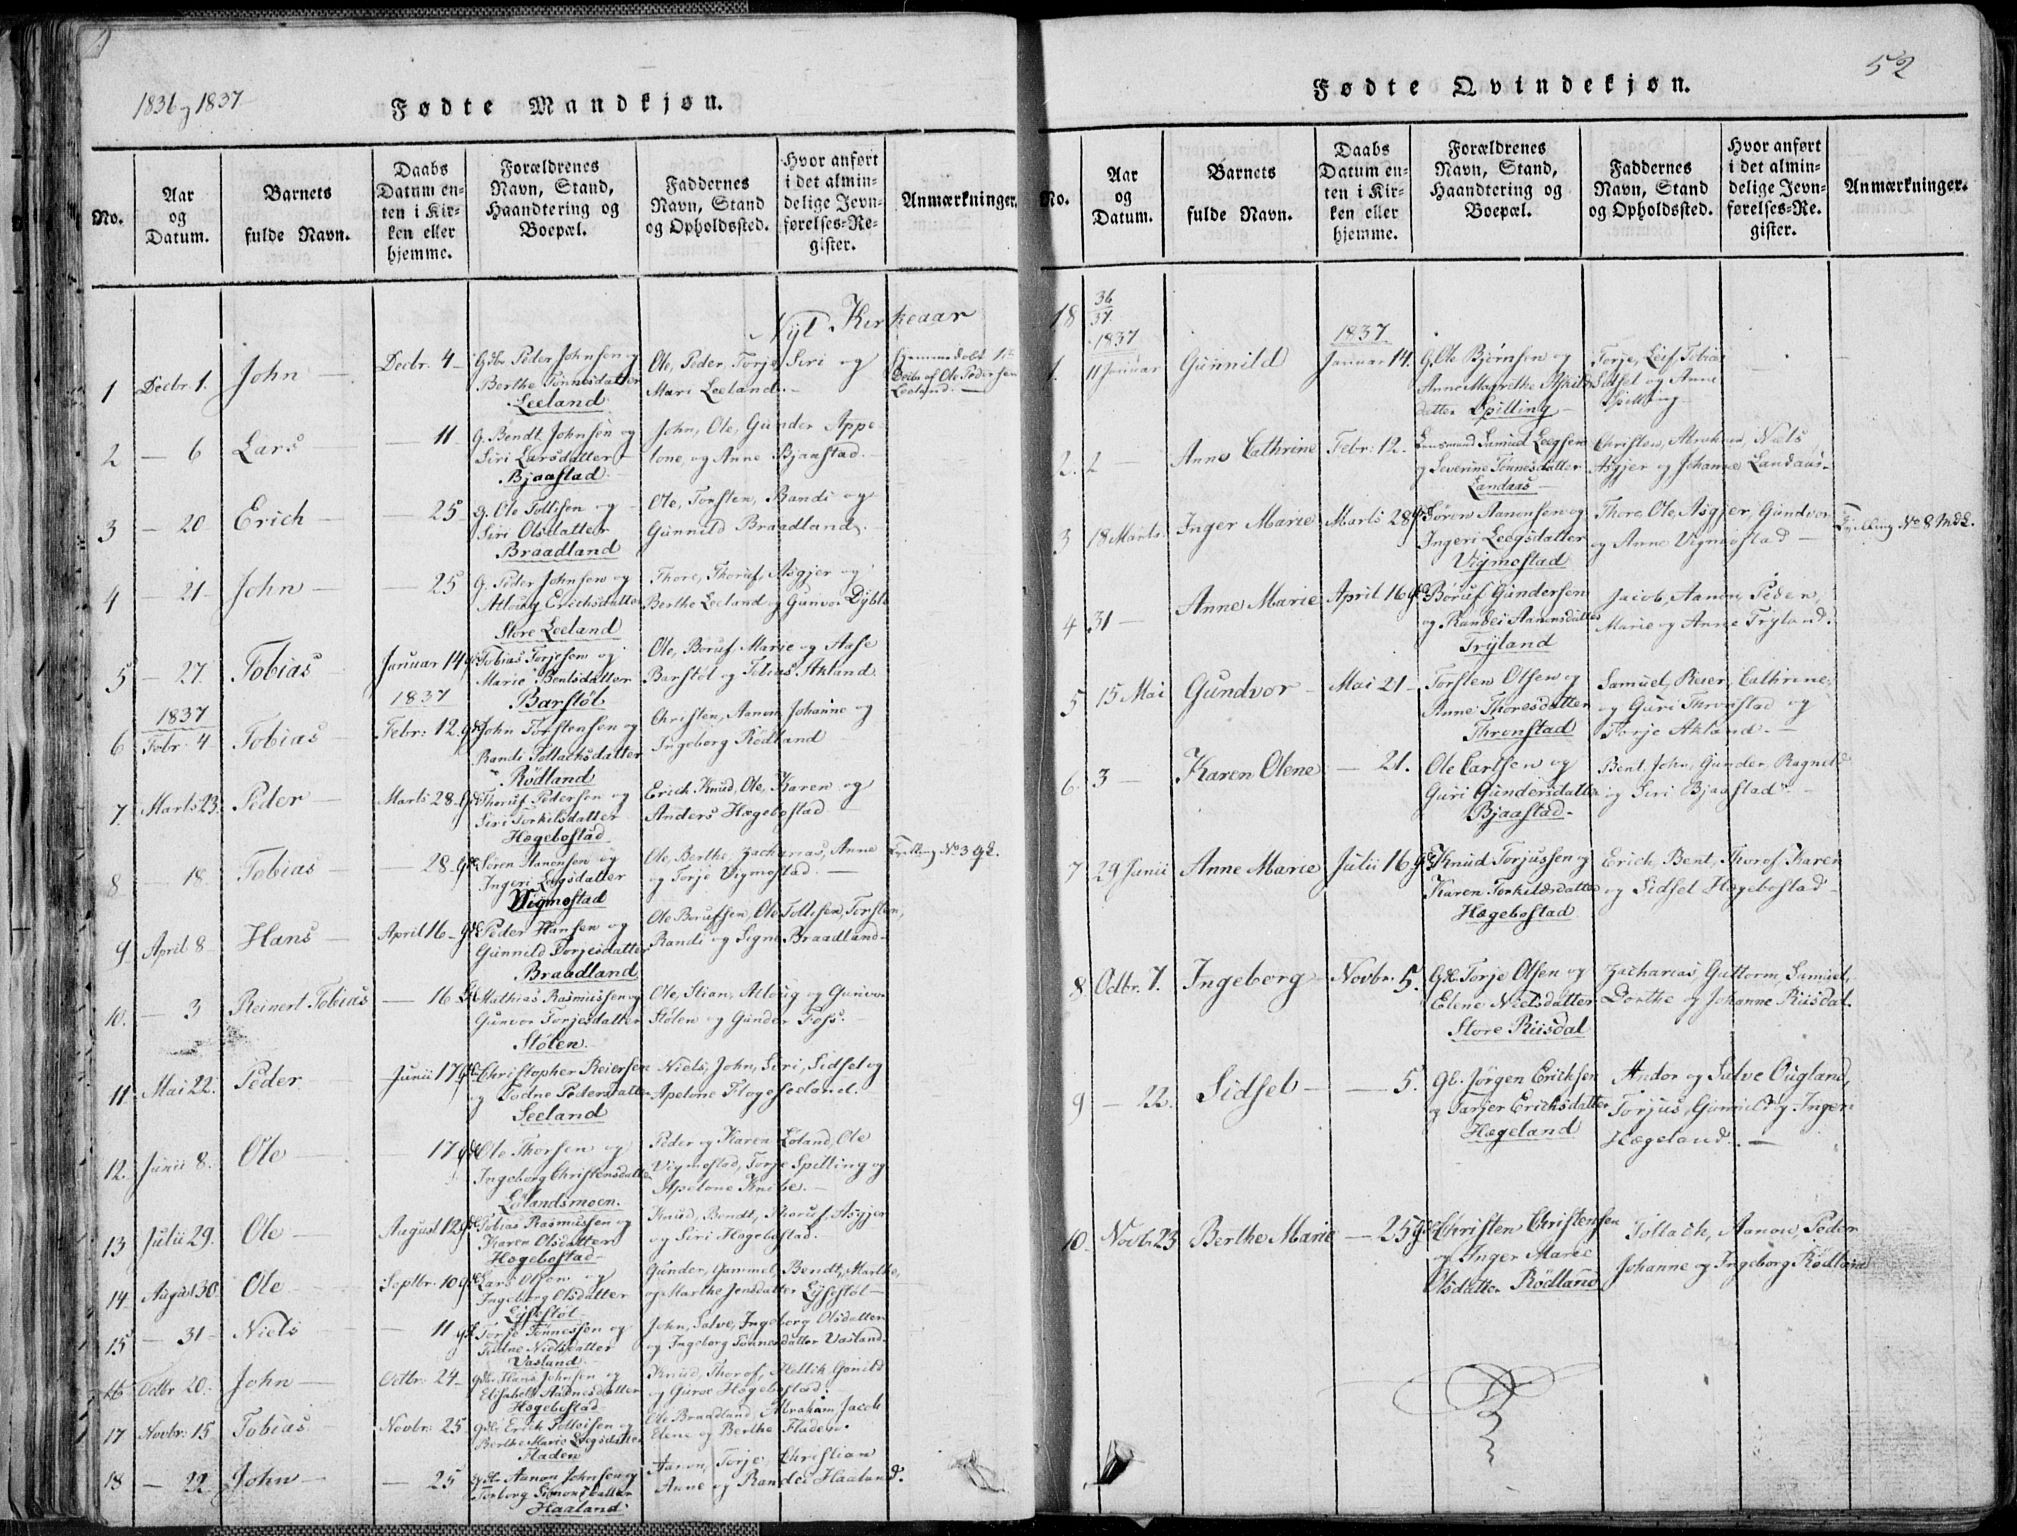 1836 og 1837
Fødte Mandkjøn.
No.
Aar og Datum.
Barnets fulde Navn.
Daabs Datum enten i Kirken eller hjemme.
Forældrenes Navn, Stand, Haandtering og Boepæl.
Faddernes Navn, Stand og Opholdssted.
Hvor anført i det almindelige Jevnførelses-Register.
Anmærkninger.
Nyt Kirkeaar
1 Decbr 1. John Decbr. 4 Peder Johnsen og Ole, Peder, Torje, Siri og Hjemmedøbt
Berthe Tønnesdatter Mari Leeland. Decbr af Ole Pedersen
Leeland Leeland.
2 – 6 Lars – 11 G. Bendt Johnsen og John, Ole, Gunder Appe-
Siri Larsdatter lone, og Anne Bjaastad.
Bjaastad
3 – 20 Erich – 25 G. Ole Tollisen og Ole, Torsten, Randi og
Siri Olsdatter Gunnild Braadland.
Braadland
4 – 21 John – 25 G. Peder Johnsen og Thore, Thoruf, Asgjer og
Atloug Erichsdatter Berthe Leeland og Gunvor
Store Leeland
5 – 27 Tobias Januar 14 Tobias Torjesen og Ole, Boruf, Marie og Aase
Marie Bentsdatter Barstøl og Tobias Akland.
1837 Barstøl
1837
6 Febr. 4 Tobias Febr. 12. John Torstensen og Christen, Aanon, Johanne og
Randi Tollachsdatter Ingeborg Rödland
Rödland
7. Marts 23. Peder Marts 28. Thoruf Pedersen og Erich, Knud, Ole, Karen og
Siri Torkilsdatter Anders Hægebostad
Hægebostad
8 – 18 Tobias – 28. Sören Aanonsen og Ole, Berthe, Zacharias, Anne Tvilling No 3
Ingeri Leegsdatter og Torje Vigmostad.
Vigmostad
9 April 8 Hans April 16 Peder Hansen og Ole Borufsen, Ole Tollisen, Torsten,
Gunnild Torjesdatter Randi og Signe Braadland
Braadland
10. – 3 Reinert Tobias – 16 Mathias Rasmussen og Ole, Stian, Atloug og Gunvor
Gunvor Torjesdatter Stølen og Gunder Foss.
Stølen.
11 Mai 22. Peder Junii 17 Christopher Reiersen Niels, John, Siri, Sidsel og
og Todne Pedersdatter Apelone Flogeseeland.
Seeland
12. Junii 8. Ole 17 Ole Thorsen og Peder og Karen Loland, Ole
Ingeborg Christensdatter Vigmostad, Torje Spilling og
Lolandsmoen. Apelone Knibe.
13 Julii 29. Ole August 12 Tobias Rasmussen og Knud, Bendt, Thoruf, Asgjer
Karen Olsdatter og Siri Hægebostad.
Hægebostad
14 August 30 Ole Septbr. 10 Lars Olsen og Gunder, Gammel, Bendt, Marthe,
Ingeborg Olsdatter og Marthe Jensdatter Lysestøl
Lysestøl
15 – 31 Niels – 11 Torje Tønnessen og John, Salve, Ingeborg Olsdatter
Todne Nielsdatter og Ingeborg Tønnesdatter Vasland
Vasland
16 Octbr 20. John Octbr. 24 Hans Johnsen og Knud, Thorof, Mellik, Gonild
Elisabeth Aadnesdatter og Guroe Hægebostad.
Hægebostad
17 Novbr. 15 Tobias Novbr. 25 Erich Tolleisen og Ole Braadland, Abraham, Jacob
Berthe Marie Leegsdatter Elene og Berthe Fladen.
Fladen
18 – 22 John – 25 Aanon Johnsen og Aanon, Torje, Christian
Torborg Simonsdatter Anne og Randei Haaland.
Haaland
52
Fødte Qvindekjøn.
No.
Aar og Datum.
Barnets fulde Navn.
Daabs Datum enten i Kirken eller hjemme.
Forældrenes Navn, Stand, Haandtering og Boepæl.
Faddernes Navn, Stand og Opholdssted.
Hvor anført i det almindelige Jevnførelses-Re. gister.
Anmærkninger.
18 36/37.
1837 1837
1. 11 Januar Gunnild Januar 14. Ole Bjørnsen og Torje, Leif, Tobias
Anne Magrethe Sidsel og Anne
datter Spilling Spilling
2. 2 – Anne Cathrine Febr. 12. Lensmand Samuel Leegsen Christen, Abraham, Niels
og Severine Tønnesdatter Asgjer og Johanne Landaas
Landaas
3 18 Marts Inger Marie Marts 28 Sören Aanonsen og Thore, Ole, Asgjer, Gundvor Tvilling No 8
Ingeri Leegsdatter og Anne Vigmostad
Vigmostad
4 31 – Anne Marie April 16 Boruf Gundersen Jacob, Aanon, Peder,
og Randei Aanonsdatter Marie og Anne Tryland.
Tryland
5 15 Mai Gundvor Mai 21 Torsten Olsen og Samuel, Reier, Cathrine,
Anne Thoresdatter og Guri Thronstad og
Thronstad Torje Akland.
6. 3 – Karen Olene – 21. Ole Carlsen og Bent, John, Gunder, Ragnild
Guri Gundersdatter og Siri Bjaastad.
Bjaastad
7 29 Junii Anne Marie Julii 16 Knud Torjussen og Erich, Bent, Thorof, Karen
Karen Torkildsdatter og Sidsel Hægebostad
Hægebostad
8 Octbr. 7. Ingeborg Novbr. 5. Torje Olsen og Zacharias, Guttorm, Samuel,
Elene Nielsdatter Dorthe og Johanne Riisdal.
Store Riisdal
9 – 22. Sidsel – 5. Jörgen Ericksen Andor og Salve Ougland,
og Tarjer Erichsdatter Torjus, Gonnild og Ingeri
Hægeland Hægeland.
10. Novbr 23 Berthe Marie – 25 Christen Christensen Tollach, Aanon, Peder
og Inger Marie Johanne og Ingeborg Rödland
Olsdatter Rödland